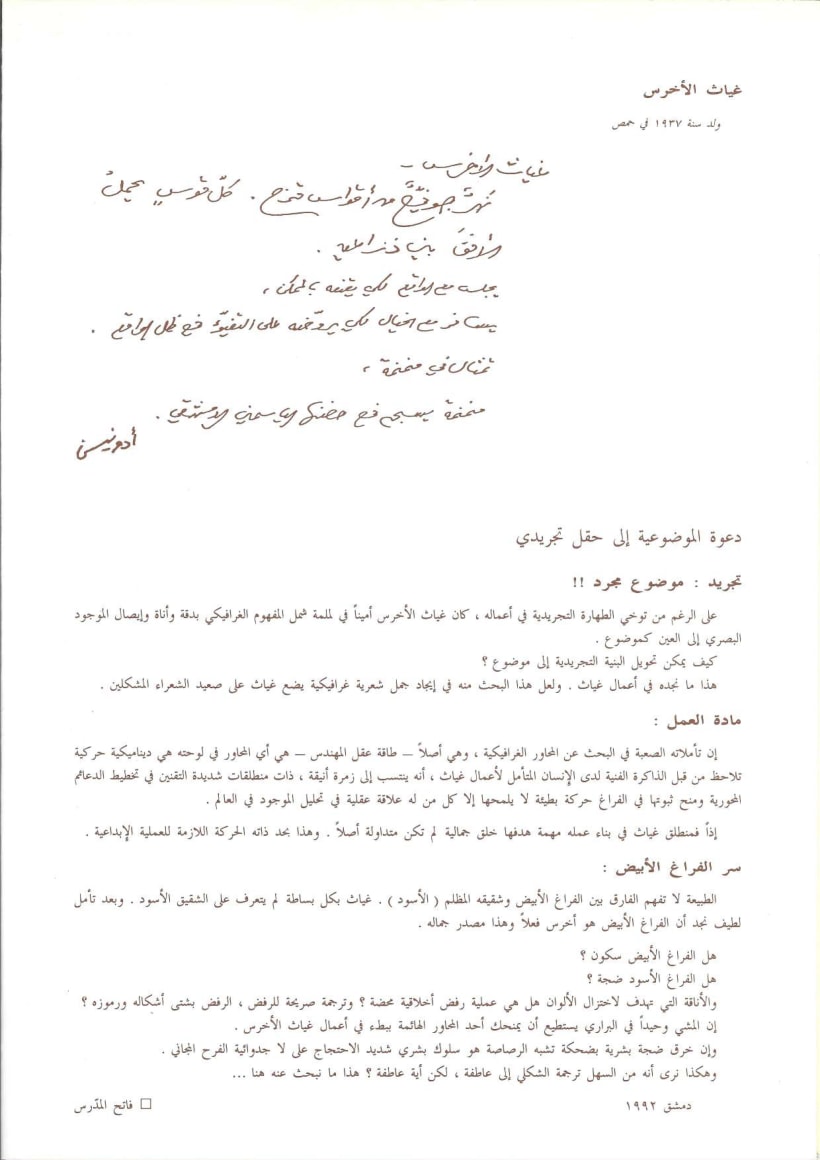 غياث الأخرس
ولد سنة ١٩٣٧ في حمص
غياث الأخرس –
نهرٌ جوفيٌّ من أقواس قزح . كلّ قوسٍ يحملُ
الأفقَ بين ذراعيه .
يجلس مع الواقع لكي يقنعه بالممكن ،
يسافر مع الخيال لكي يروّضه على التفيّؤ في ظل الواقع .
تمثال في منمنمة ،
منمنمة يسبح في حضنها الياسمين الدمشقي .
أدونيس
دعوة الموضوعية إلى حقل تجريدي
تجريد : موضوع مجرد !!
على الرغم من توخي الطهارة التجريدية في أعماله ، كان غياث الأخرس أميناً في لملمة شمل المفهوم الغرافيكي بدقة وأناة وإيصال الموجود
البصري إلى العين كموضوع .
كيف يمكن تحويل البنية التجريدية إلى موضوع ؟
هذا ما نجده في أعمال غياث . ولعل هذا البحث منه في إيجاد جمل شعرية غرافيكية يضع غياث على صعيد الشعراء المشكلين .
مادة العمل :
إن تأملاته الصعبة في البحث عن المحاور الغرافيكية ، وهي أصلاً – طاقة عقل المهندس – هي أي المحاور في لوحته هي ديناميكية حركية
تلاحظ من قبل الذاكرة الفنية لدى الإنسان المتأمل لأعمال غياث ، أنه ينتسب إلى زمرة أنيقة ، ذات منطلقات شديدة التقنين في تخطيط الدعائم
المحورية ومنح ثبوتها في الفراغ حركة بطيئة لا يلمحها إلا كل من له علاقة عقلية في تحليل الموجود في العالم .
إذاً فمنطلق غياث في بناء عمله مهمة هدفها خلق جمالية لم تكن متداولة أصلاً . وهذا بحد ذاته الحركة اللازمة للعملية الإبداعية .
سر الفراغ الأبيض :
الطبيعة لا تفهم الفارق بين الفراغ الأبيض وشقيقه المظلم ( الأسود ) . غياث بكل بساطة لم يتعرف على الشقيق الأسود . وبعد تأمل
لطيف نجد أن الفراغ الأبيض هو أخرس فعلاً وهذا مصدر جماله .
هل الفراغ الأبيض سكون ؟
هل الفراغ الأسود ضجة ؟
والأناقة التي تهدف لاختزال الألوان هل هي عملية رفض أخلاقية محضة ؟ وترجمة صريحة للرفض ، الرفض بشتى أشكاله ورموزه ؟
إن المشي وحيداً في البراري يستطيع أن يمنحك أحد المحاور الهائمة ببطء في أعمال غياث الأخرس .
وإن خرق ضجة بشرية بضحكة تشبه الرصاصة هو سلوك بشري شديد الاحتجاج على لا جدوائية الفرح المجاني .
وهكذا نرى أنه من السهل ترجمة الشكلي إلى عاطفة ، لكن أية عاطفة ؟ هذا ما نبحث عنه هنا ...
دمشق ١٩٩٢
□ فاتح المدّرس